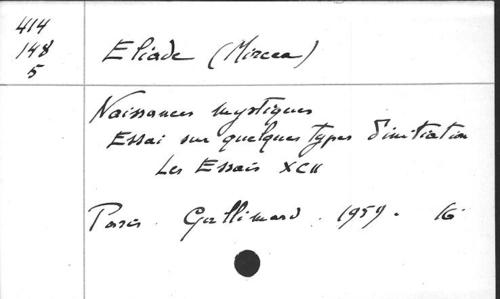 414
148
5
Eliade (Mircea)
Naissances mystiques
Essai sur quelques types d'initiation
Les Essais XCII
Paris. Gallimard. 1959. 16°